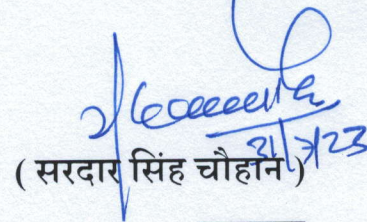 31/7/23
( सरदार सिंह चौहान )